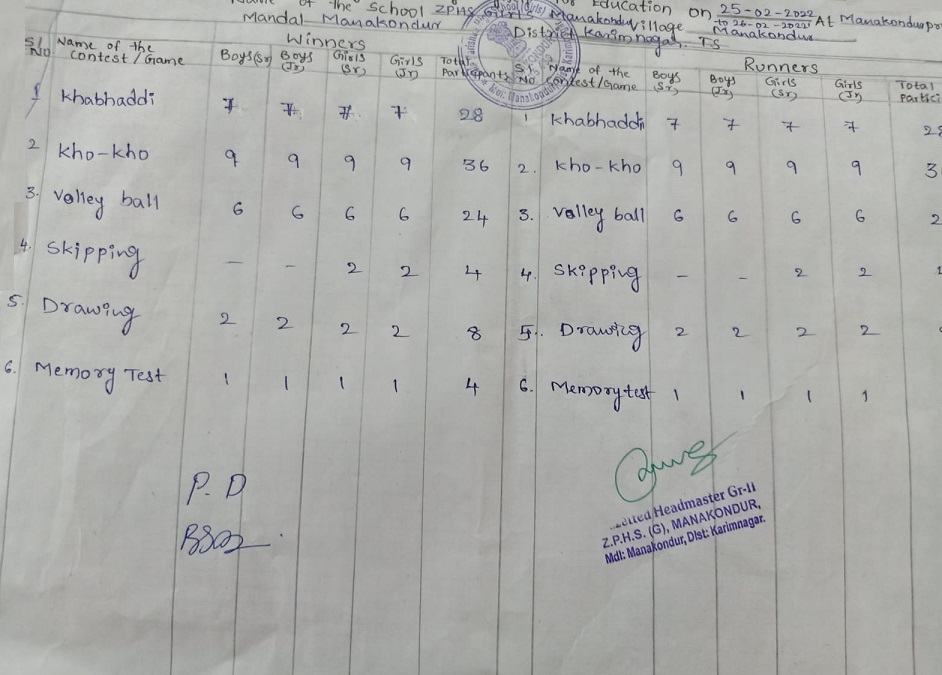 of the School ZPHS Girls Manakondur Village Education on 25-02-2022 At Manakondur
to 26-02-2022
Mandal Manakondur District Karimnagar. TS Manakondur
Winners
Runners
Sl No Name of the Contest/Game Boys (Sr) Boys (Jr) Girls (Sr) Girls (Jr) Total Participants Sl No Name of the Contest/Game Boys (Sr) Boys (Jr) Girls (Sr) Girls (Jr) Total
1 Khabhaddi 7 7 7 7 28 1 Khabhaddi 7 7 7 7
2 Kho-kho 9 9 9 9 36 2. Kho-kho 9 9 9 9
3. Volley ball 6 6 6 6 24 3. Volley ball 6 6 6 6
4. Skipping - - 2 2 4 4. Skipping - - 2 2
5. Drawing 2 2 2 2 8 5. Drawing 2 2 2 2
6. Memory Test 1 1 1 1 4 6. Memory test 1 1 1 1
P. D
Headmaster Gr-II
Z.P.H.S. (G), MANAKONDUR,
Mdl: Manakondur, Dist: Karimnagar.